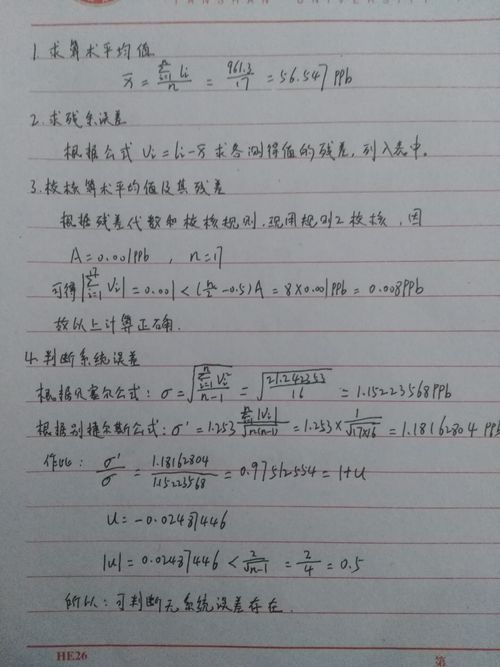 TANSHAN UNIVERSITY
1. 求算术平均值
x̄ = Σ(i=1→n) li / n = 961.3/17 = 56.547 ppb
2. 求残余误差
根据公式 Vi = li - x̄ 求各测得值的残差, 列入表中。
3. 校核算术平均值及其残差
根据残差代数和校核规则, 现用规则2校核, 因
A = 0.001ppb , n = 17
可得 |Σ(i=1→17) Vi| = 0.001 < (n/2 - 0.5)A = 8×0.001ppb = 0.008ppb
故以上计算正确.
4. 判断系统误差
根据贝塞尔公式: σ = √(Σ(i=1→n) Vi² / n-1) = √(21.242353/16) = 1.15223568ppb
根据别捷尔斯公式: σ' = 1.253 Σ|Vi| / √n(n-1) = 1.253× 1/√17×16 = 1.18162804 ppb
作比: σ'/σ = 1.18162804/1.15223568 = 0.97512554 = 1+u
u = -0.02487446
|u| = 0.02487446 < 2/√n-1 = 2/4 = 0.5
所以: 可判断无系统误差存在.
HE26 第